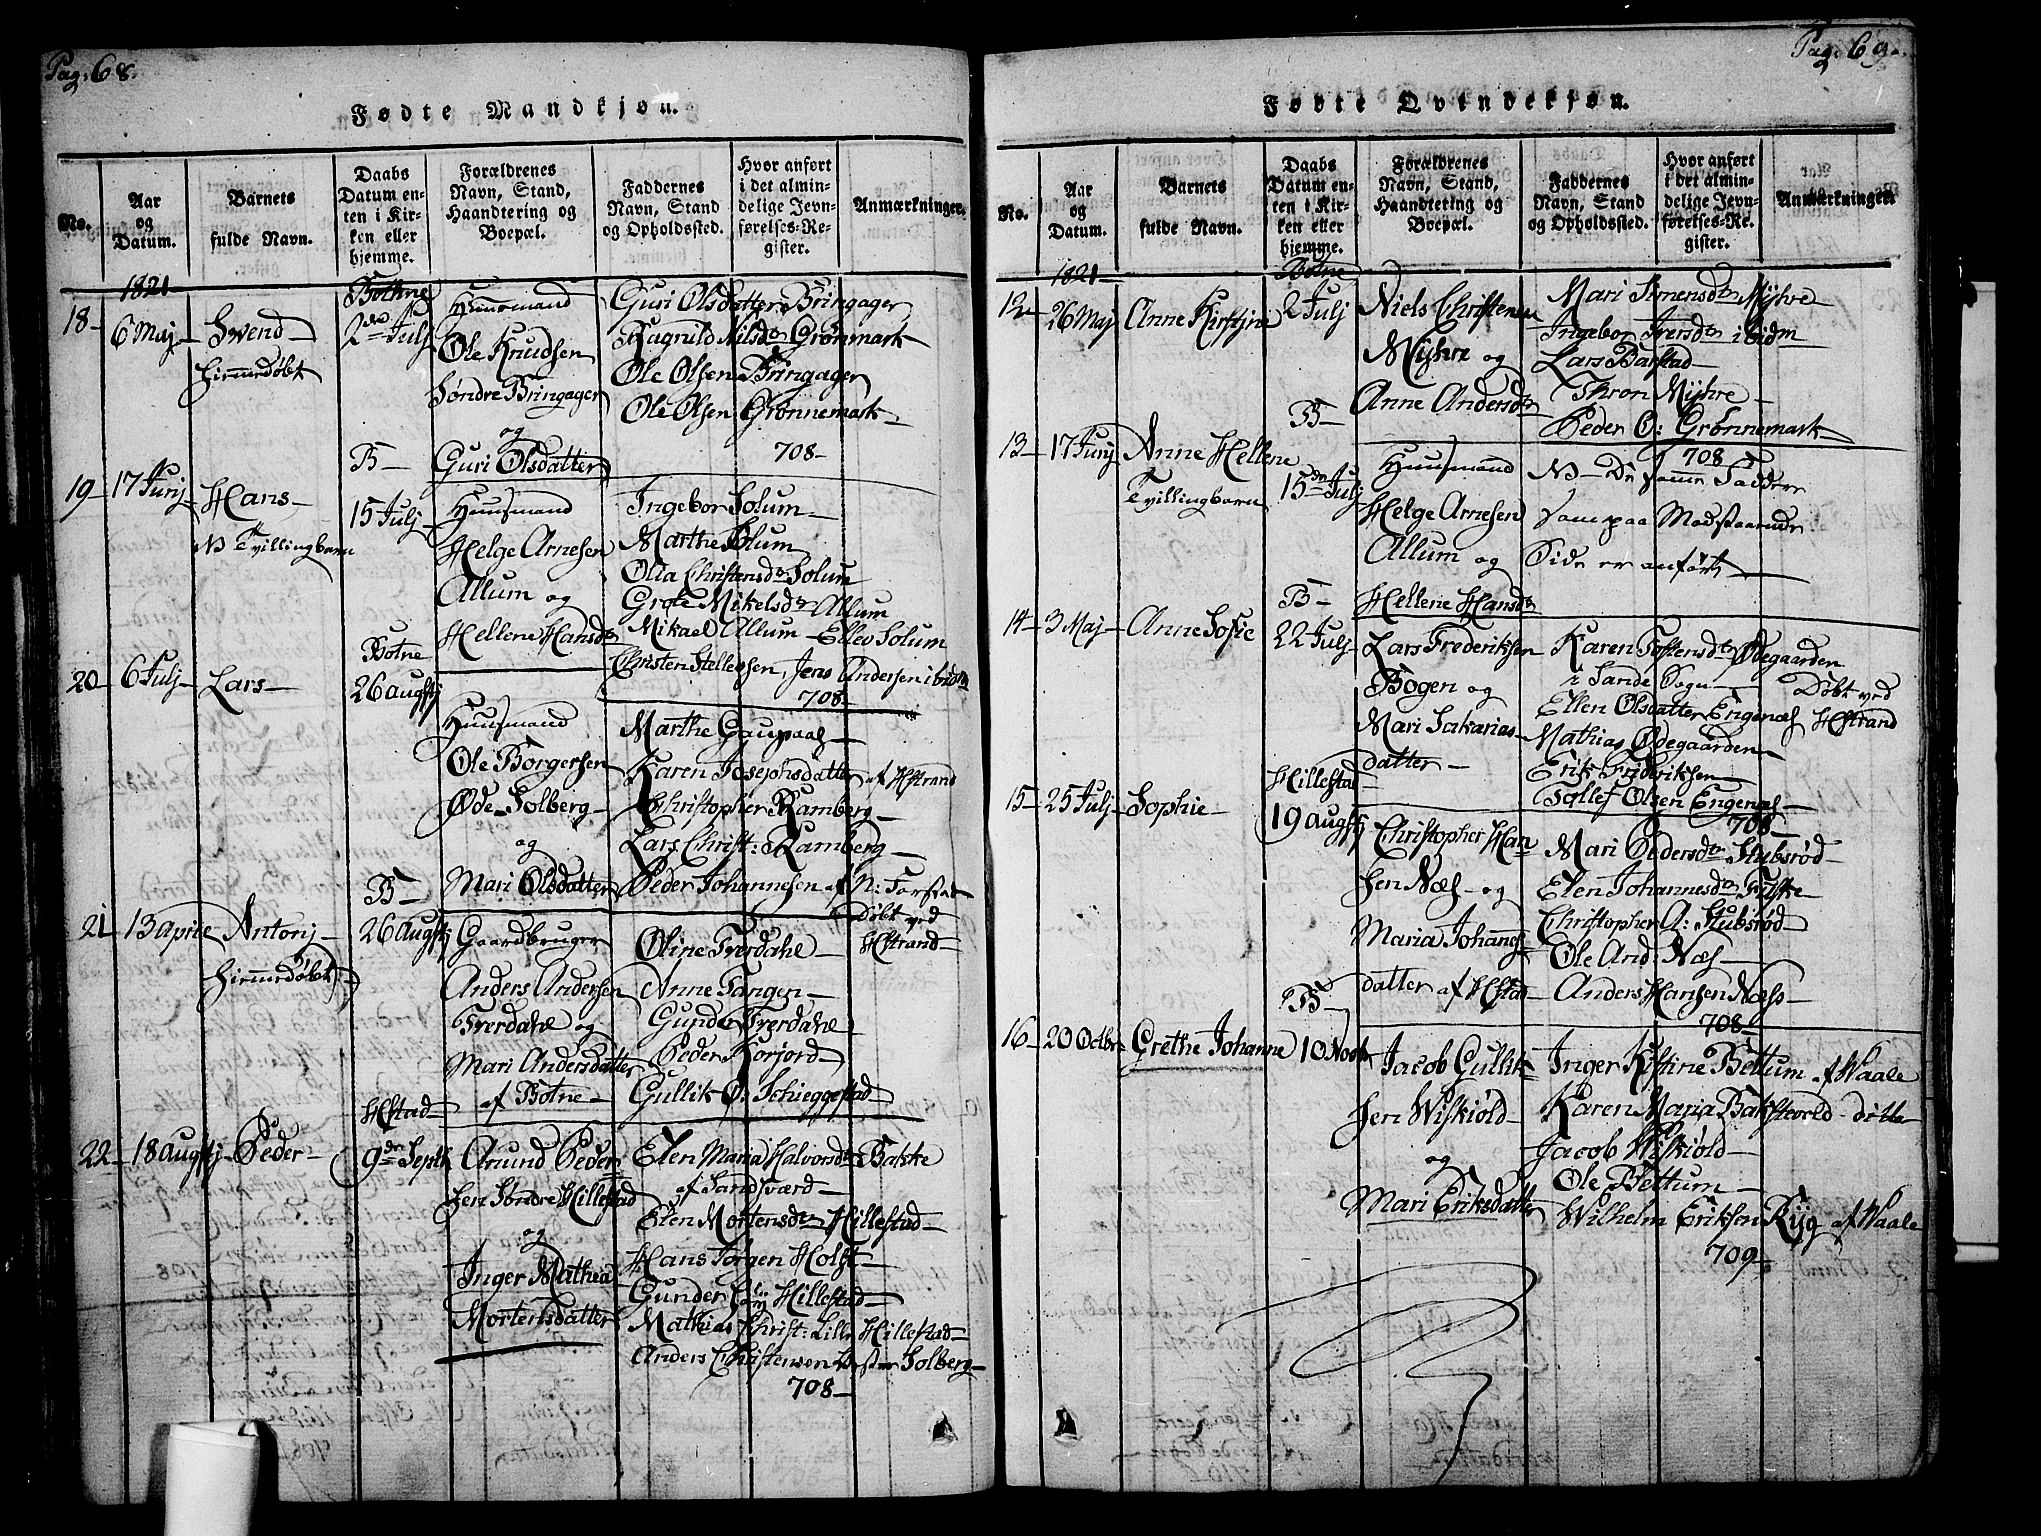 Pag: 68.
Fødte Mandkjøn.
No.
Aar
og
Datum.
Barnets
fulde Navn.
Daabs
Datum en-
ten i Kir-
ken eller
hjemme.
Forældrenes
Navn, Stand,
Haandtering og
Boepæl.
Faddernes
Navn, Stand
og Opholdssted.
Hvor anført
i det almin-
delige Jevn-
førelses-Re-
gister.
Anmærkninger.
1821
18
6 Maj
Svend
Hiemmedøbt
Bothne
2den Julj
Huusmand
Ole Knudsen
Søndre Bringager
og
Guri Olsdatter
Guri Olsdatter Bringager
Ragnild Nilsdtr Grønmark
Ole Olsen Bringager
Ole Olsen Grønnemark
708
19
17 Junj
Hans
NB Tvillingbarn
B
15 Julj
Huusmand
Helge Arnesen
Allum og
Hellene Hansdtr
Ingebor Solum
Marthe Solum
Olla Christensdtr Solum
Grote Mikelsdtr Allum
Mikael Allum Ellev Solum
Christen Stellefsen, Jens Andersen ibidm
708
20
6 Julj
Lars
Botne
26 Augstj
Huusmand
Ole Borgersen
Øde Solberg
og
Mari Olsdatter
Marthe Gaupaas
Karen Josephsdatter af Hstrand
Christopher Ramberg
Lars Christ: Ramberg
Peder Johannesen af N: Farstad
21
13 Aprile
Antonj
Hiemmedøbt
B
26 Augstj
Gaardbruger
Anders Andersen
Frerdahl og
Mari Andersdatter
af Botne
Oline Frerdahl
Anne Tangen
Gunder Frerdahl
Peder Korjord
Gullik O: Schieggestad
Døbt ved
Hstrand
22
18 Augstj
Peder
Hstad
9de Septb
Amund Peder-
sen Søndre Hillestad
og
Inger Mathea
Mortensdatter
Elen Maria Halvorsdtr Bakke
af Sandsværd
Elen Mortensdtr Hillestad
Hans Jørgen Holst
Gunder Hillestad
Mathias Christ: Lille Hillestad
Anders Christensen Solberg
708
Pag: 69.
Fødte Qvindekjøn.
No.
Aar
og
Datum.
Barnets
fulde Navn.
Daabs
Datum en-
ten i Kir-
ken eller
hjemme.
Forældrenes
Navn, Stand,
Haandtering og
Boepæl.
Faddernes
Navn, Stand
og Opholdssted.
Hvor anført
i det almin-
delige Jevn-
førelses-Re-
gister.
Anmærkninger
1821
12
26 Maj
Anne Kirstine
Botne
2 Julj
Niels Christensen
Myhre og
Anne Andersdtr
Mari Simensdtr Myhre
Ingebor Iversdtr ibidm
Lars Barstad
Thron Myhre
Peder O: Grønnemark
708
13
17 Junj
Anne Hellene
Tvillingbarn
B
15de Julj
Huusmand
Helge Arnesen
Allum og
Hellene Hansdtr
NB De samme Faddere
som paa Modstaaende
Side er anført
14
3 Maj
Anne Sofie
B
22 Julj
Lars Frederiksen
Bogen og
Mari Sakarias-
datter
Karen Toftensdtr Ødegaarden
i Sande Sogn
Ellen Olsdatter Engenæs
Mathias Ødegaarden
Erik Frideriksen
Tollef Olsen Engenæs
708
Døbt ved
Hstrand
15
25 Julj
Sophie
Hillestad
19 Augstj
Christopher Han-
sen Næs og
Maria Johannes-
datter af Hstad
Mari Pedersdtr Stubsrød
Elen Johannesdtr Fyske
Christopher A: Stubsrød
Ole And: Næs
Anders Hansen Næss
708
16
20 Octbr
Grethe Johanne
B
10 Novbr
Jacob Gullik-
sen Wiskiöld
og
Mari Eriksdatter
Inger Kistine Bettum af Waale
Karen Maria Bakskold ditto
Jacob Wiskiöld
Ole Bettum
Wilhelm Eriksen Ryg af Waale
709